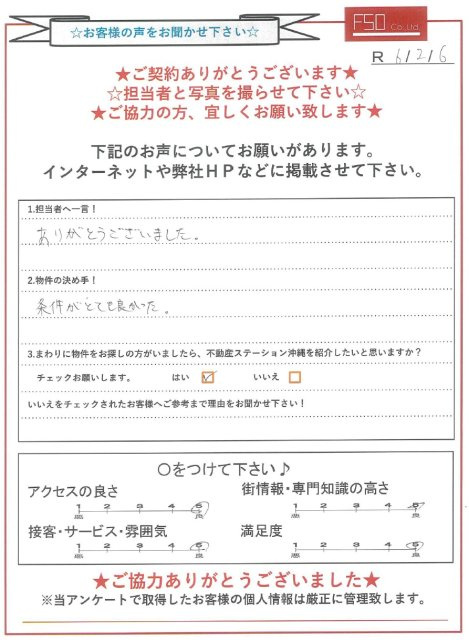 ☆お客様の声をお聞かせ下さい☆
FSO Co.Ltd.
R 6/2/6
★ご契約ありがとうございます★
☆担当者と写真を撮らせて下さい☆
★ご協力の方、宜しくお願い致します★
下記のお声についてお願いがあります。
インターネットや弊社HPなどに掲載させて下さい。
1.担当者へ一言！
ありがとうございました。
2.物件の決め手！
条件がとても良かった。
3.まわりに物件をお探しの方がいましたら、不動産ステーション沖縄を紹介したいと思いますか？
チェックお願いします。 はい ☑ いいえ ☐
いいえをチェックされたお客様へご参考まで理由をお聞かせ下さい！
〇をつけて下さい♪
アクセスの良さ 街情報・専門知識の高さ
1 2 3 4 5 1 2 3 4 5
悪 良 悪 良
接客・サービス・雰囲気 満足度
1 2 3 4 5 1 2 3 4 5
悪 良 悪 良
★ご協力ありがとうございました★
※当アンケートで取得したお客様の個人情報は厳正に管理致します。